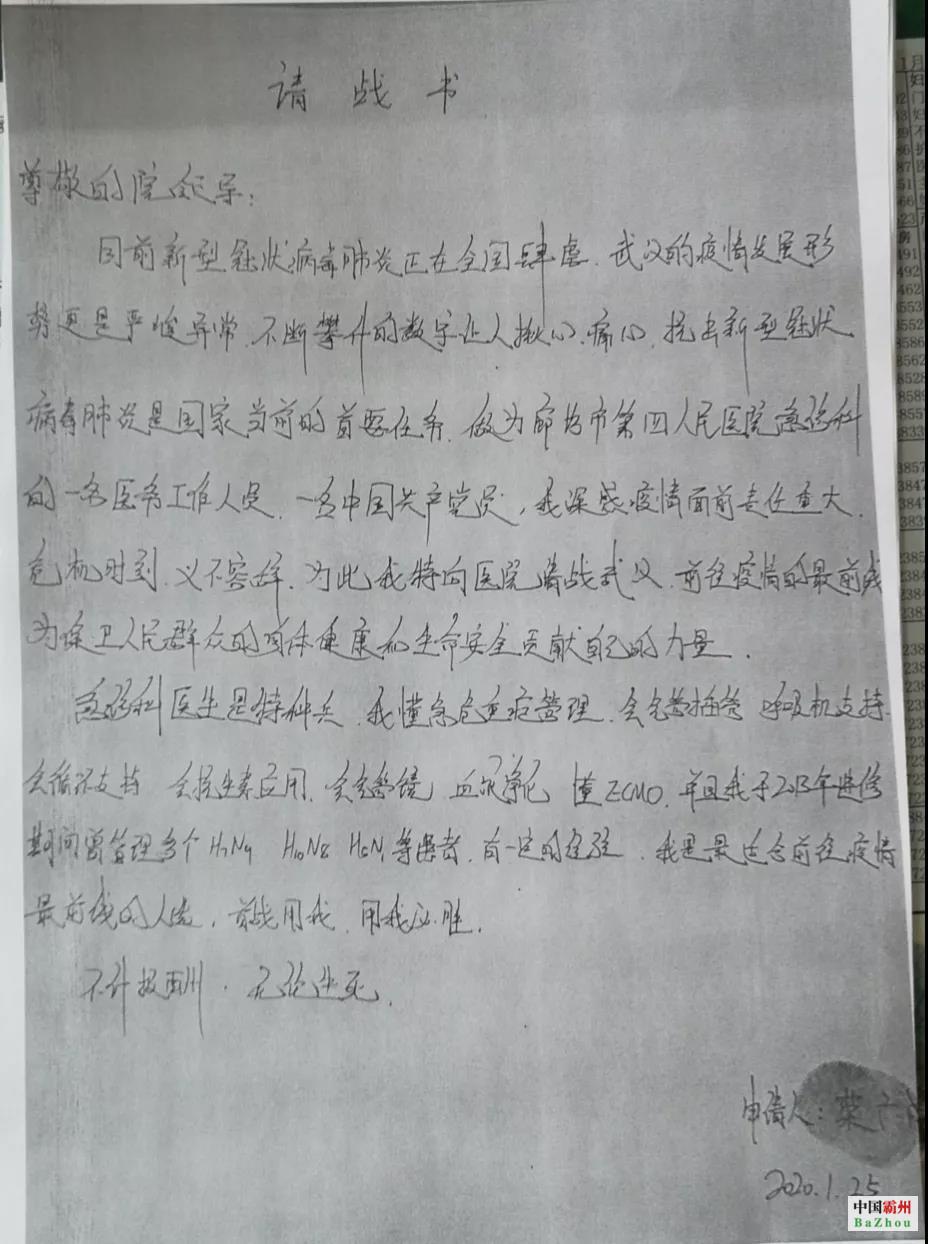 请战书
尊敬的院领导:
目前新型冠状病毒肺炎正在全国肆虐.武汉的疫情发展形
势更是严峻异常.不断攀升的数字让人揪心、痛心.抗击新型冠状
病毒肺炎是国家当前的首要任务.做为廊坊市第四人民医院急诊科
的一名医务工作人员.一名中国共产党员,我深感疫情面前责任重大.
危机时刻.义不容辞.为此我特向医院请战武汉.前往疫情的最前线
为保卫人民群众的身体健康和生命安全贡献自己的力量.
急诊科医生是特种兵.我懂急危重症管理.会气管插管 呼吸机支持.
会循环支持 会抗生素应用.会气管镜 血液净化 懂ECMO.并且我于2013年进修
期间曾管理多个H7N9 H10N8 H5N1等患者.有一定的经验.我是最适合前往疫情
最前线的人选.若战用我.用我必胜.
不计报酬.无论生死.
申请人:
2020.1.25
中国霸州
BaZhou
1月